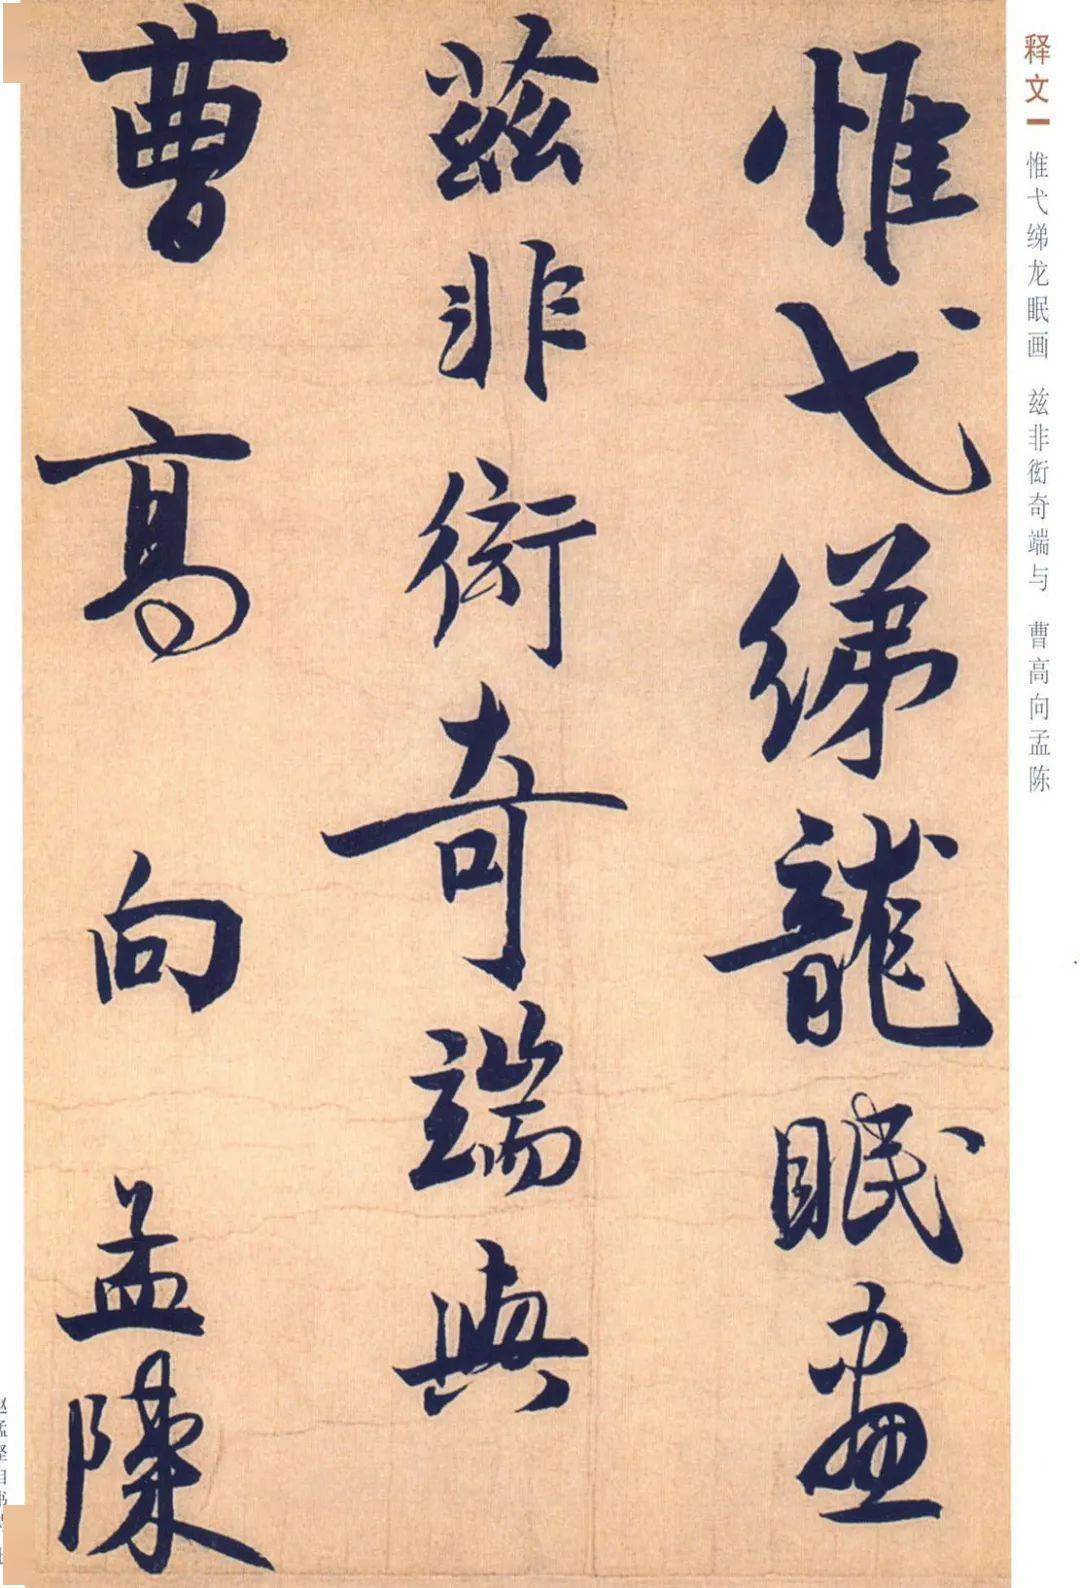 释文 惟弋绨龙眠画 兹非衒奇端与 曹高向孟陈
惟弋綈龍眠畫
茲非衒奇端與
曹高向孟陳